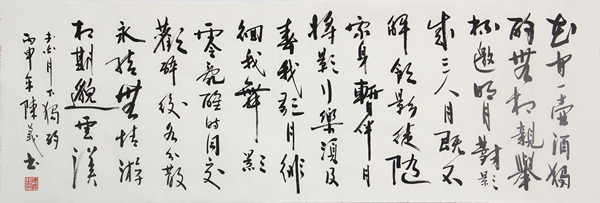 花間一壺酒獨
酌無相親舉
杯邀明月對影
成三人月既不
解飲影徒隨
我身暫伴月
將影行樂須及
春我歌月徘
徊我舞影
零亂醒時同交
歡醉後各分散
永結無情游
相期邈雲漢
李白月下獨酌
丙申年陳義書